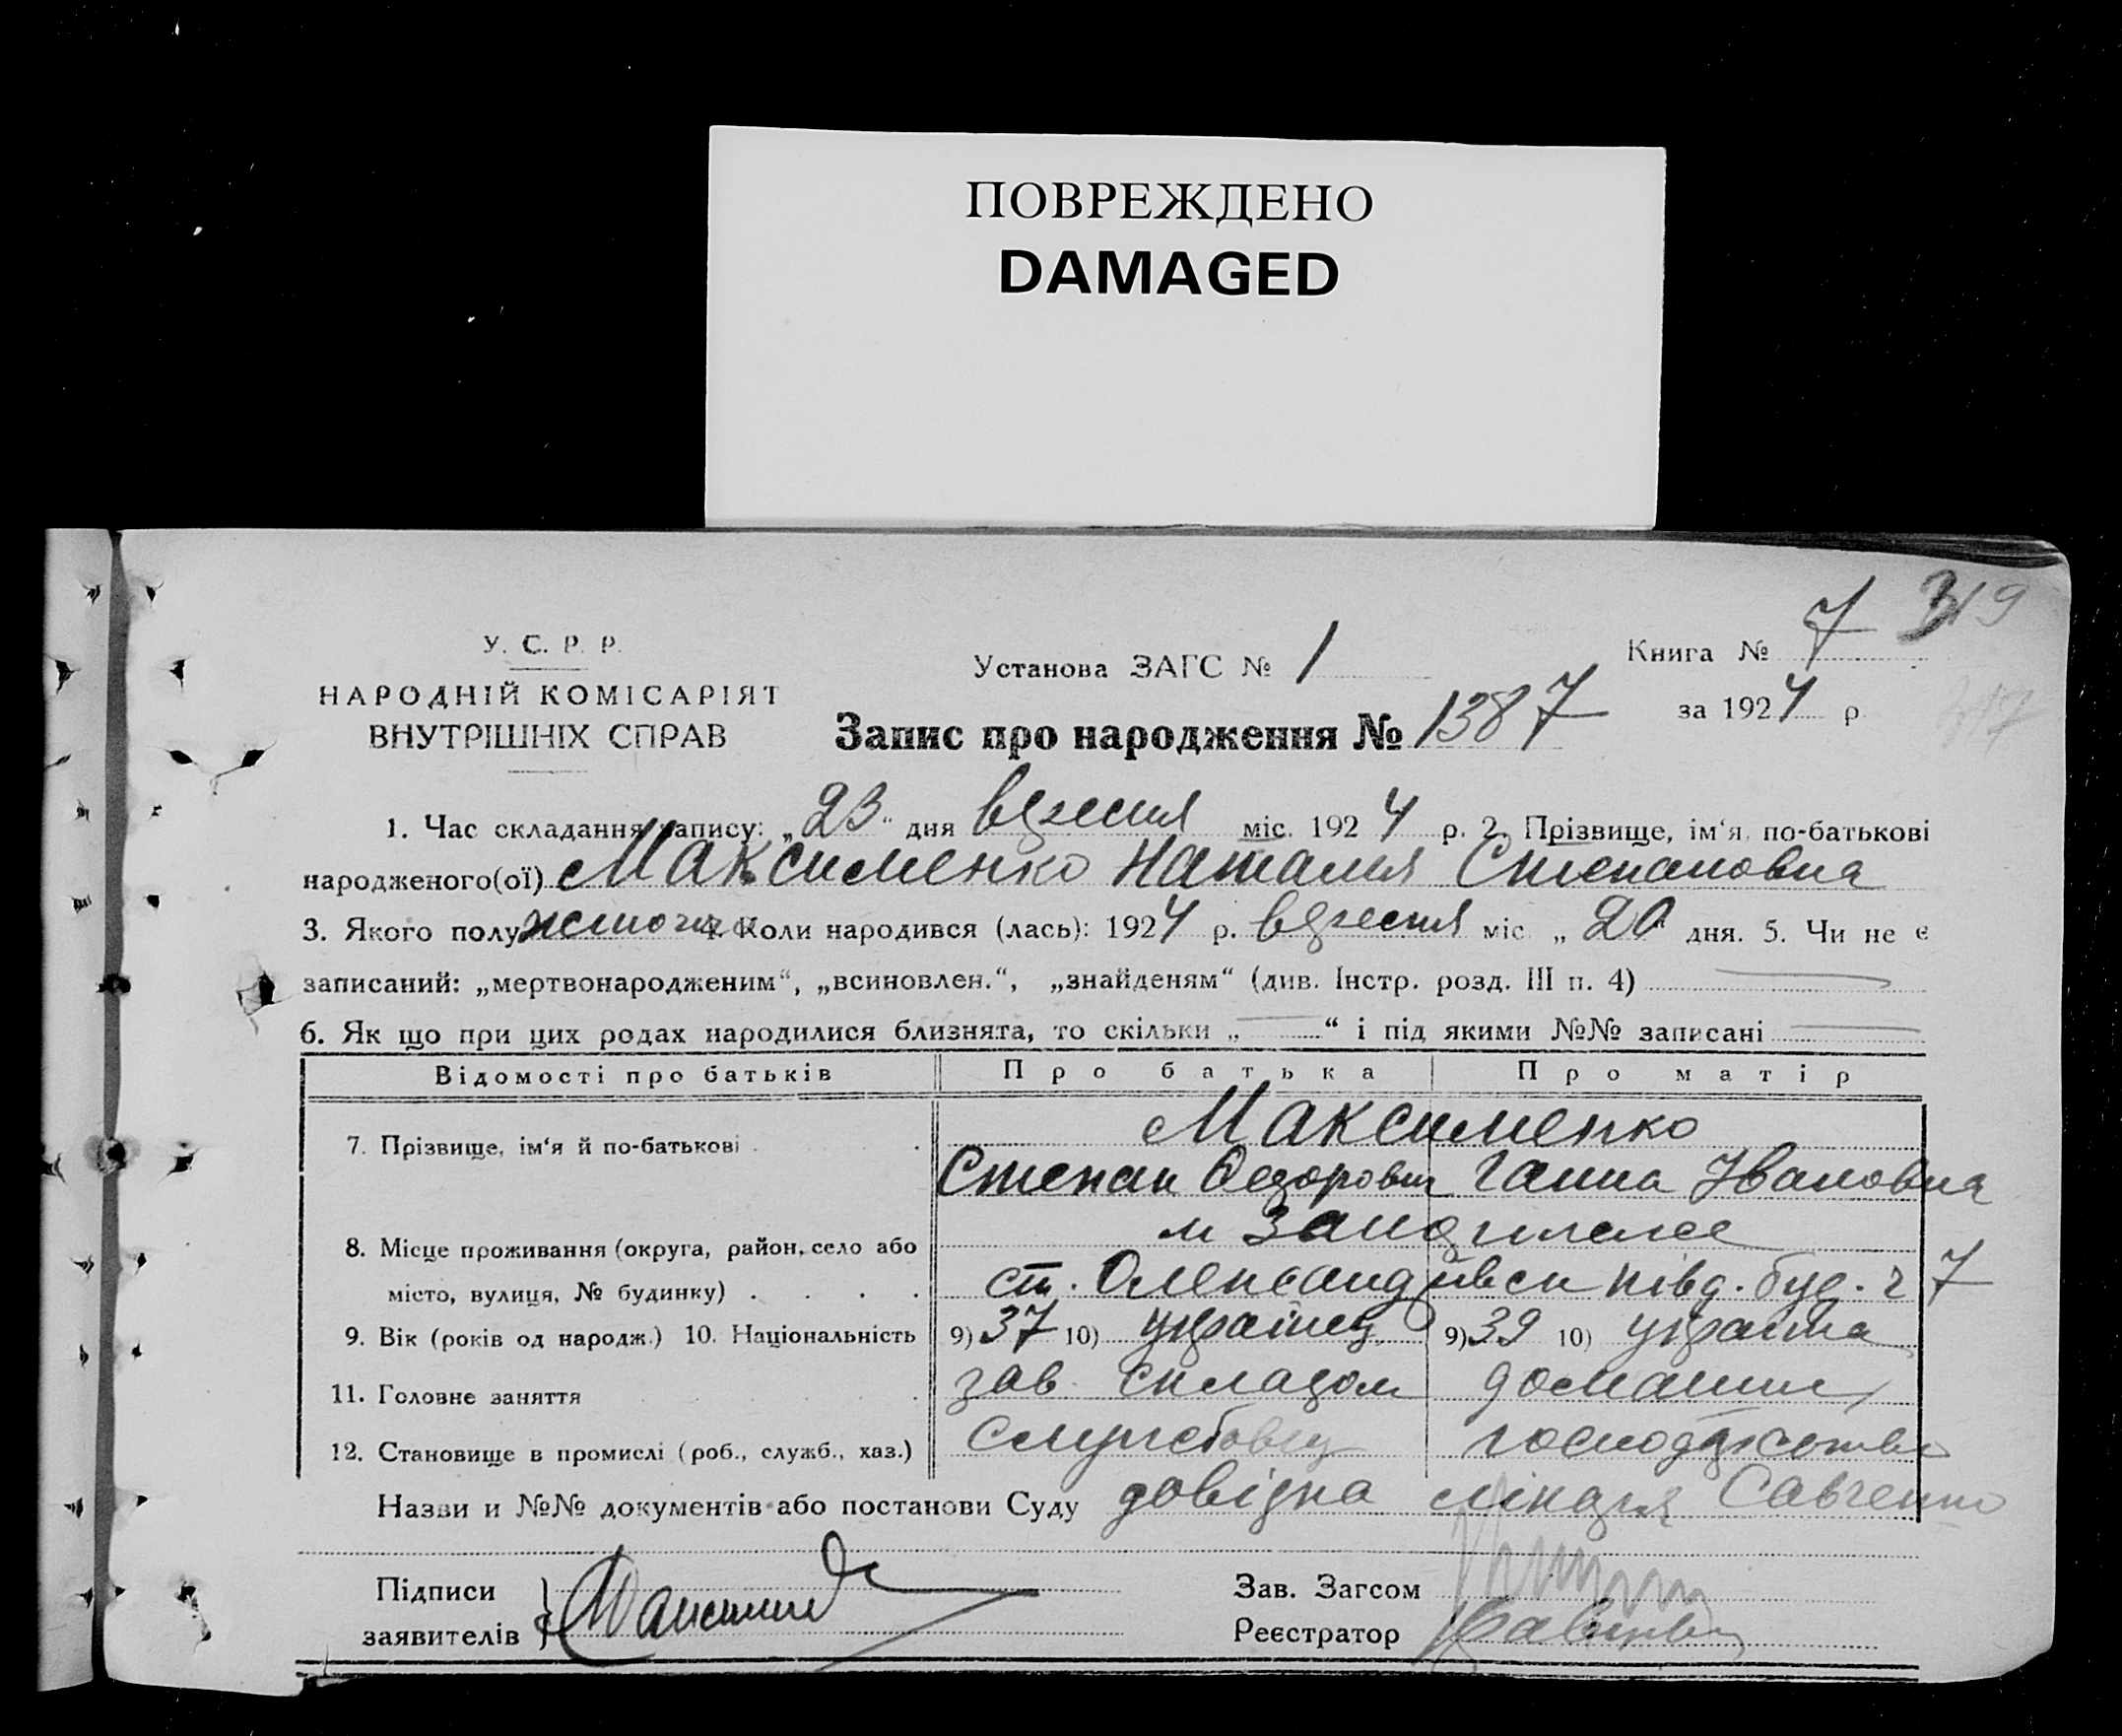 ПОВРЕЖДЕНО
DAMAGED
319
У. С. Р. Р.
НАРОДНІЙ КОМІСАРІЯТ
ВНУТРІШНІХ СПРАВ
Установа ЗАГС № 1
Книга № 7
за 1924 р
Запис про народження № 1387
1. Час складання запису: „23“ дня вересня міс. 1924 р. 2. Прізвище, ім‘я, по-батькові
народженого(ої) Максименко Наталия Степановна
3. Якого полу жіноча 4. Коли народився (лась): 1924 р. вересня міс „20“ дня. 5. Чи не є
записаний: „мертвонародженим“, „всиновлен.“, „знайденям“ (див. Інстр. розд. III п. 4)
6. Як що при цих родах народилися близнята, то скільки „ “ і під якими №№ записані
Відомості про батьків Про батька Про матір
7. Прізвище, ім‘я й по-батькові Максименко
Степан Федорович Ганна Івановна
8. Місце проживання (округа, район, село або м
місто, вулиця, № будинку) ст. Олександрівськ півд. буд. ч 7
9. Вік (років од народж.) 10. Національність 9) 37 10) українец 9) 39 10) українка
11. Головне заняття зав складом домашнє
12. Становище в промислі (роб., служб., хаз.) службовец господарство
Назви и №№ документів або постанови Суду довідка лікаря Савченко
Підписи
заявителів
Зав. Загсом
Реєстратор